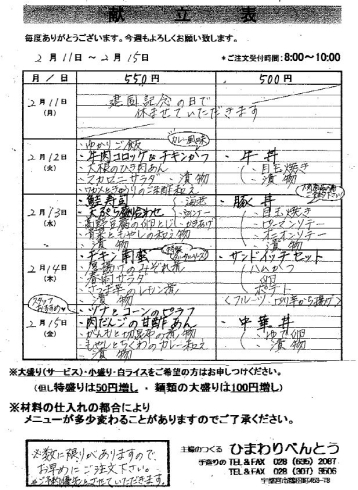 献立表
毎度ありがとうございます。今週もよろしくお願い致します。
2月11日～2月15日
*ご注文受付時間：8:00～10:00
月／日 550円 500円
2月11日(月)
建国記念の日で
休ませていただきます
2月12日(火)
・ゆかりご飯
カレー風味
・牛肉コロッケ&チキンかつ
・大根のひき肉あん
・マカロニサラダ ・漬物
・牛丼
・目玉焼き
・漬物
2月13日(水)
・鮭寿司
・天ぷら盛合わせ
・漬物
・豚丼
・目玉焼き
・マカロニソテー
・漬物
2月14日(木)
・チキン南蛮
・厚揚げのみぞれ煮
・春雨サラダ
・さつま芋のレモン煮
・漬物
・サンドイッチセット
ハムかつ
ポテト
2月15日(金)
スタッフ
・ツナとコーンのピラフ
・肉だんごの甘酢あん
・がんもと切昆布の煮物
・もやしとちくわのカレー和え
・漬物
・中華丼
・ゆで卵
・漬物
※大盛り(サービス)・小盛り・白ライスをご希望の方はお申しつけください。
(但し特盛りは50円増し・麺類の大盛りは100円増し)
※材料の仕入れの都合により
メニューが多少変わることがありますのでご了承ください。
※数に限りがありますので、
お早めにご注文下さい。
ご予約優先とさせていただきます。
主婦のつくる ひまわりべんとう
手造りの TEL&FAX 028 (635) 2087
TEL&FAX 028 (307) 3506